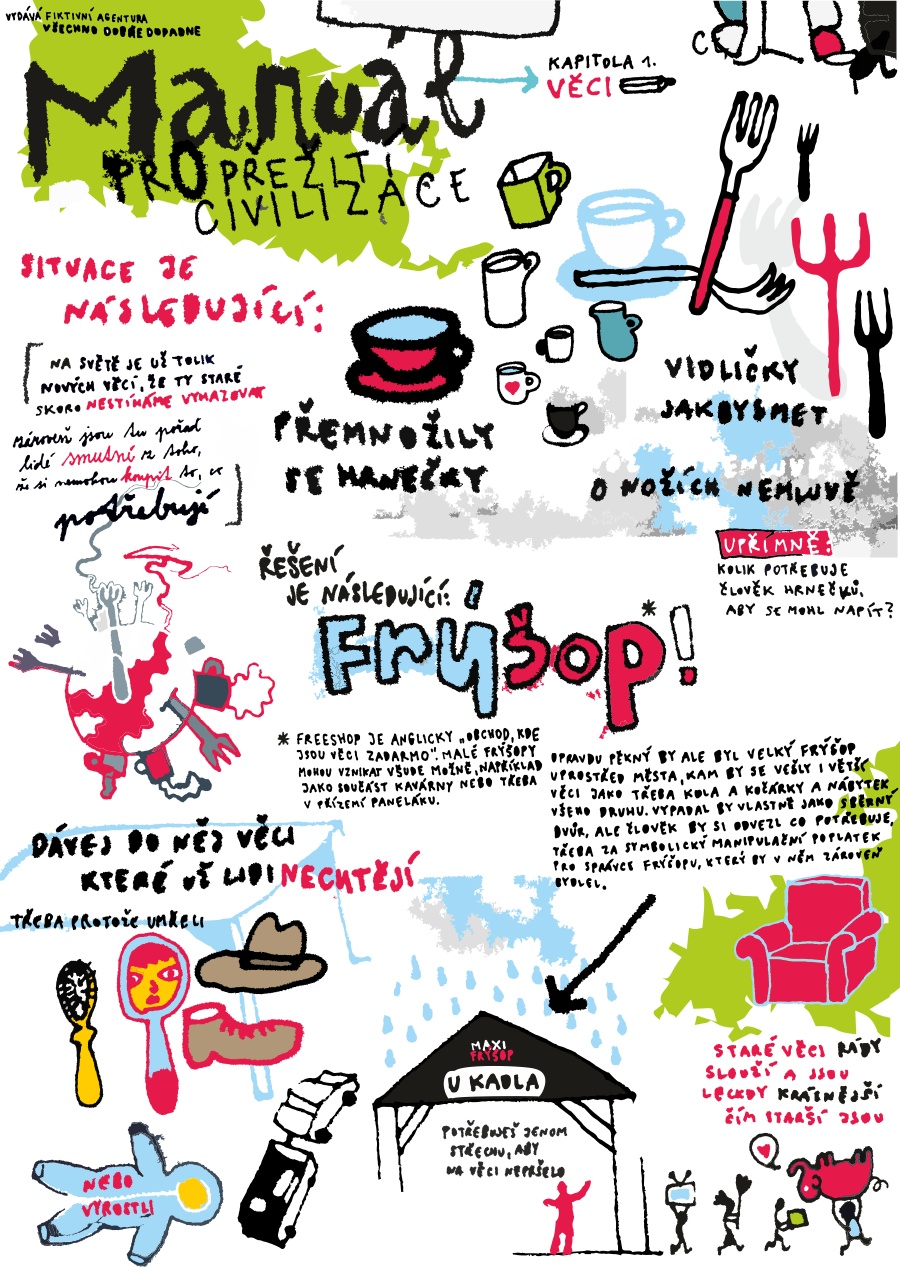 VYDÁVÁ FIKTIVNÍ AGENTURA
VŠECHNO DOBŘE DOPADNE
Manuál
PRO PŘEŽITÍ
CIVILIZACE
KAPITOLA 1.
VĚCI
SITUACE JE
NÁSLEDUJÍCÍ:
NA SVĚTĚ JE UŽ TOLIK
NOVÝCH VĚCÍ, ŽE TY STARÉ
SKORO NESTÍHÁME VYHAZOVAT
zároveň jsou tu pořád
lidé smutní z toho,
že si nemohou koupit to, co
potřebují
PŘEMNOŽILY
SE HRNEČKY
VIDLIČKY
JAKBYSMET
O NOŽÍCH NEMLUVĚ
UPŘÍMNĚ:
KOLIK POTŘEBUJE
ČLOVĚK HRNEČKŮ,
ABY SE MOHL NAPÍT?
ŘEŠENÍ
JE NÁSLEDUJÍCÍ:
Frýšop*!
* FREESHOP JE ANGLICKY „OBCHOD, KDE
JSOU VĚCI ZADARMO". MALÉ FRÝŠOPY
MOHOU VZNIKAT VŠUDE MOŽNĚ, NAPŘÍKLAD
JAKO SOUČÁST KAVÁRNY NEBO TŘEBA
V PŘÍZEMÍ PANELÁKU.
OPRAVDU PĚKNÝ BY ALE BYL VELKÝ FRÝŠOP
UPROSTŘED MĚSTA, KAM BY SE VEŠLY I VĚTŠÍ
VĚCI JAKO TŘEBA KOLA A KOČÁRKY A NÁBYTEK
VŠEHO DRUHU. VYPADAL BY VLASTNĚ JAKO SBĚRNÝ
DVŮR, ALE ČLOVĚK BY SI ODVEZL CO POTŘEBUJE,
TŘEBA ZA SYMBOLICKÝ MANIPULAČNÍ POPLATEK
PRO SPRÁVCE FRÝŠOPU, KTERÝ BY V NĚM ZÁROVEŇ
BYDLEL.
DÁVEJ DO NĚJ VĚCI
KTERÉ UŽ LIDI NECHTĚJÍ
TŘEBA PROTOŽE UMŘELI
NEBO
VYROSTLI
MAXI
FRÝŠOP
U KADLA
POTŘEBUJEŠ JENOM
STŘECHU, ABY
NA VĚCI NEPRŠELO
STARÉ VĚCI RÁDY
SLOUŽÍ A JSOU
LECKDY KRÁSNĚJŠÍ
ČÍM STARŠÍ JSOU